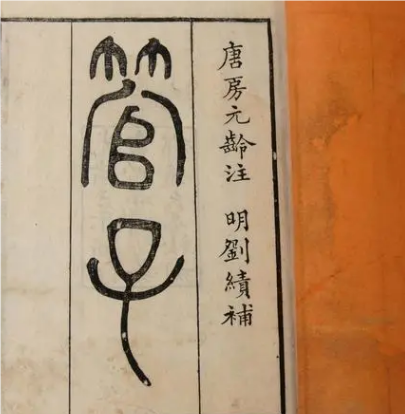 唐房元齡注 明劉績補
管子